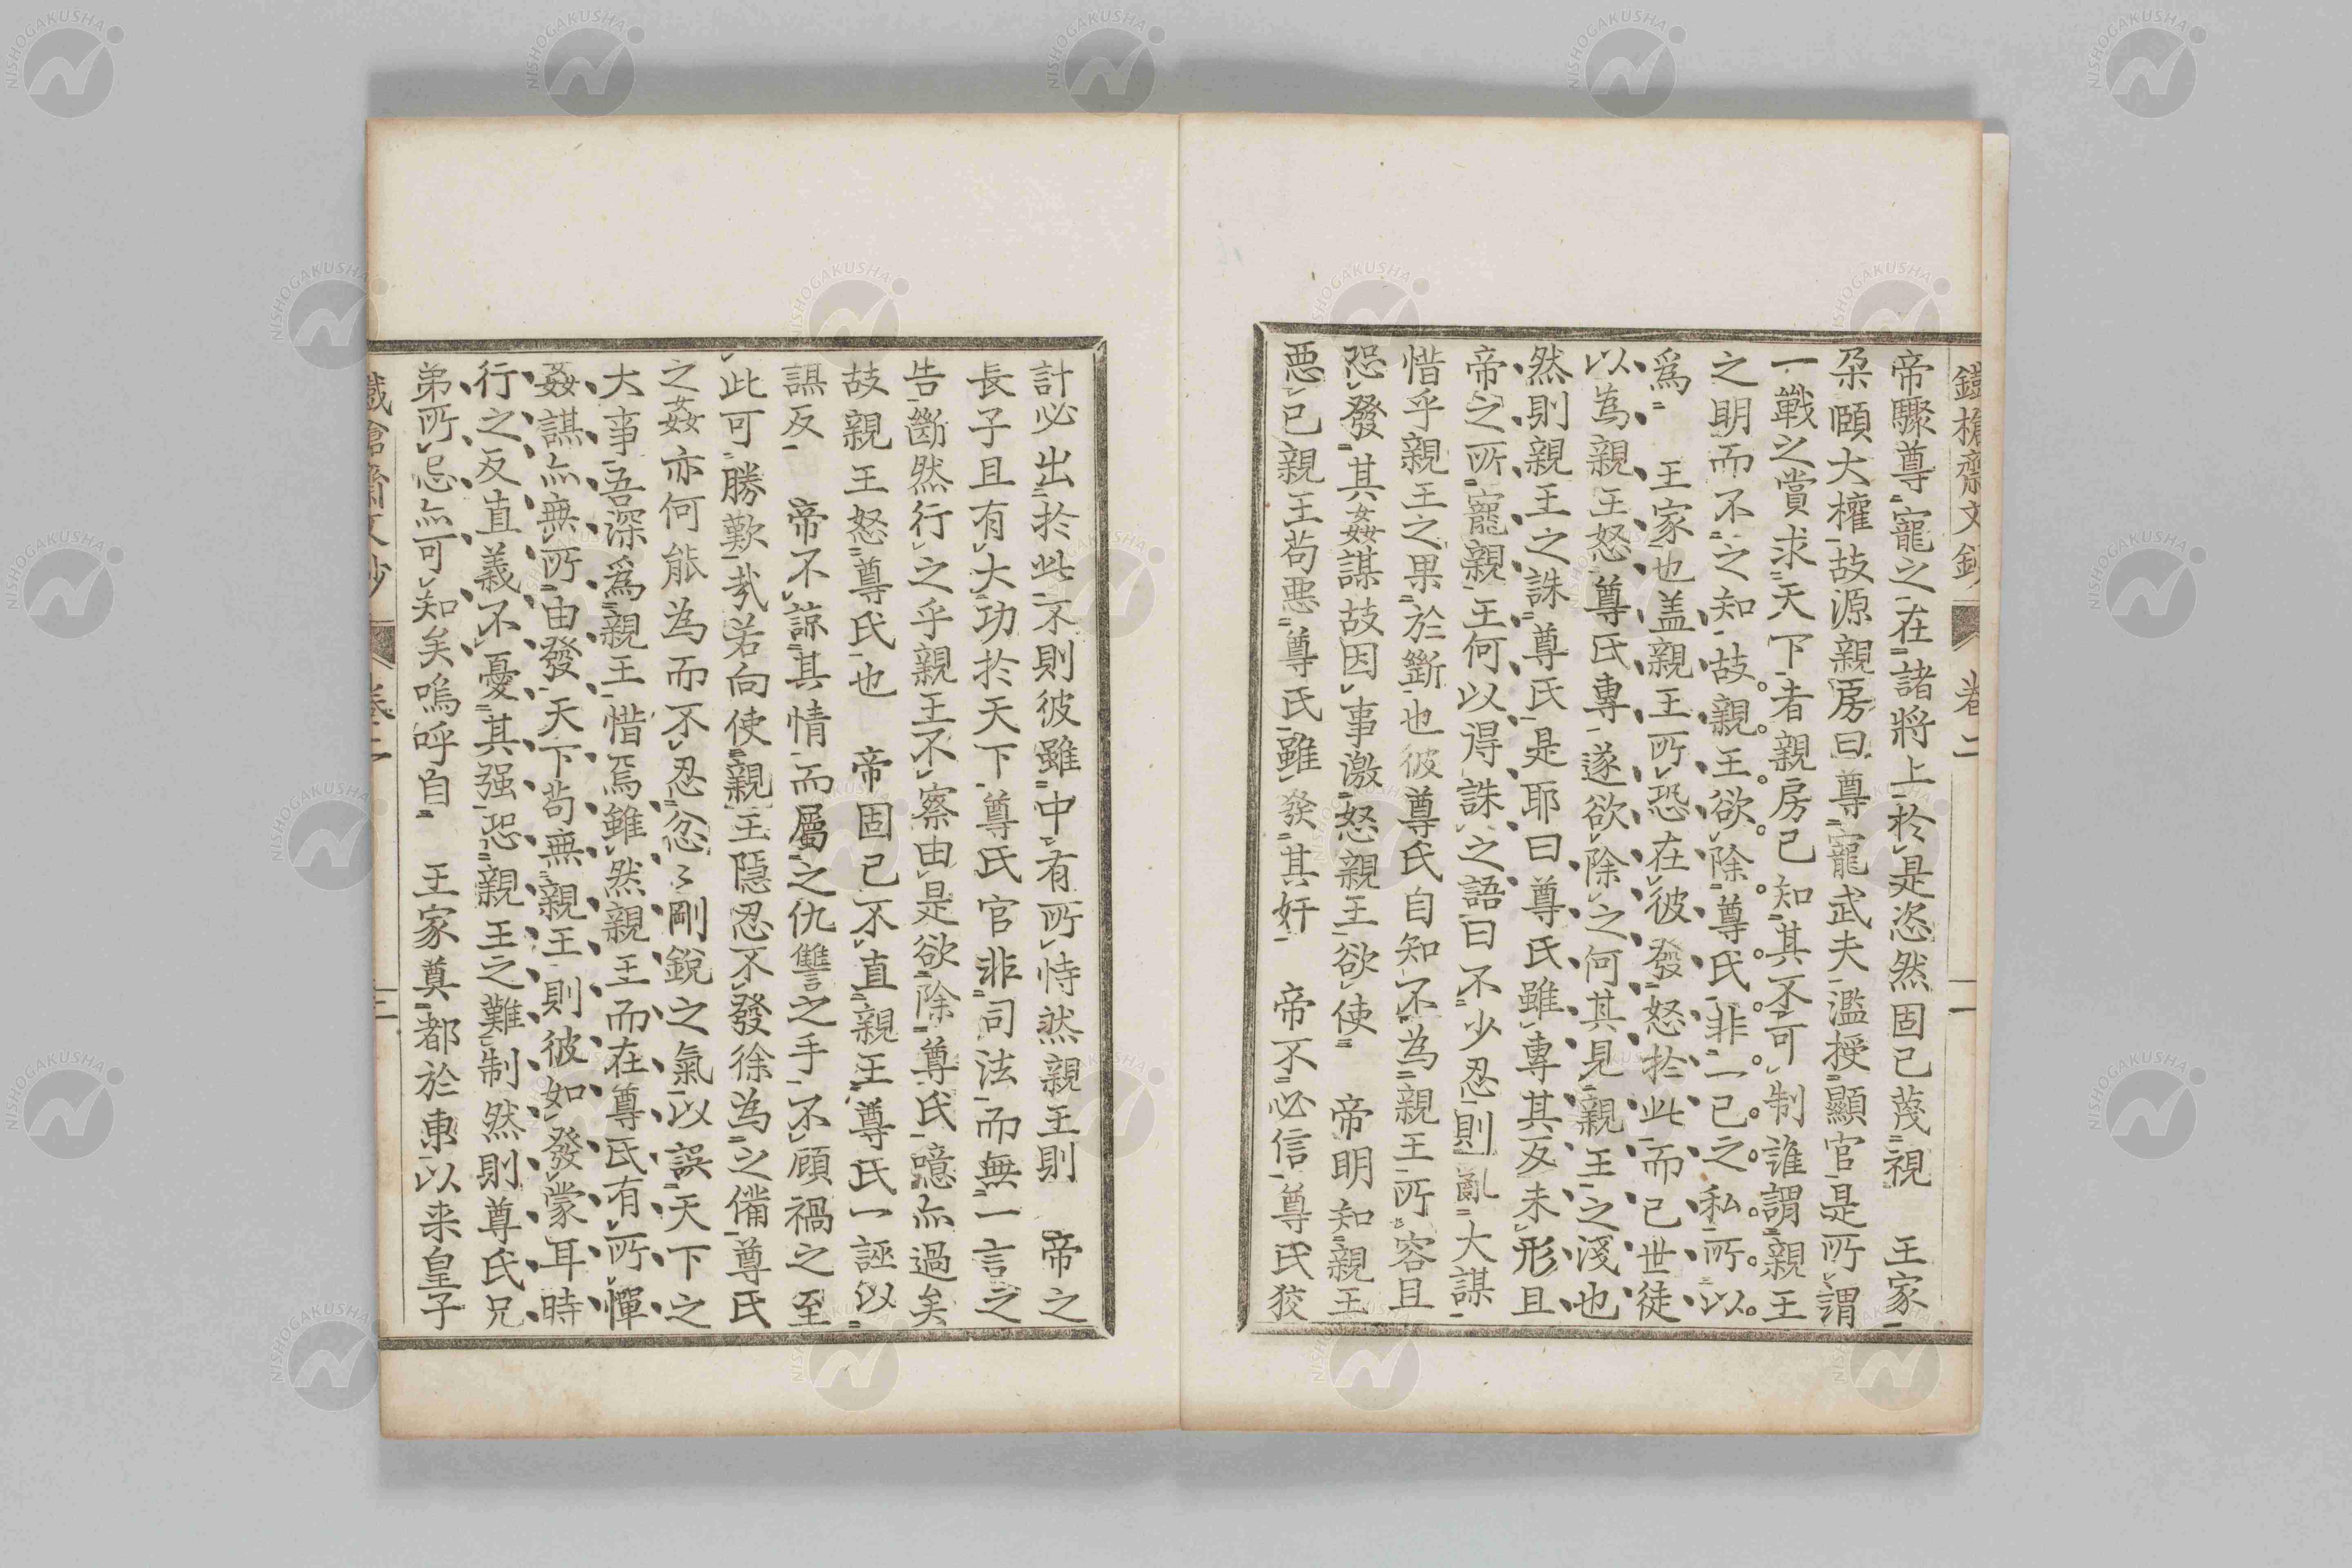 鐵槍齋文鈔 卷二 二
帝驟尊寵之在諸將上於是恣然固已蔑視 王家
朶頤大權故源親房曰尊寵武夫濫授顯官是所謂
一戰之賞求天下者親房已知其不可制誰謂親王
之明而不之知故親王欲除尊氏非一己之私所以
爲 王家也盖親王所恐在彼發怒於此而已世徒
以為親王怒尊氏專遂欲除之何其見親王之淺也
然則親王之誅尊氏是耶曰尊氏雖專其反未形且
帝之所寵親王何以得誅之語曰不少忍則亂大謀
惜乎親王之果於斷也彼尊氏自知不為親王所容且
恐發其姦謀故因事激怒親王欲使 帝明知親王
惡已親王苟惡尊氏雖發其奸 帝不必信尊氏狡
計必出於此不則彼雖中有所恃然親王則 帝之
長子且有大功於天下尊氏官非司法而無一言之
告斷然行之乎親王不察由是欲除尊氏噫亦過矣
故親王怒尊氏也 帝固已不直親王尊氏一誣以
謀反 帝不諒其情而屬之仇讐之手不顧禍之至
此可勝歎哉若向使親王隱忍不發徐為之備尊氏
之姦亦何能為而不忍忿々剛銳之氣以誤天下之
大事吾深爲親王惜焉雖然親王而在尊氏有所憚
姦謀亦無所由發天下苟無親王則彼如發蒙耳時
行之反直義不憂其强恐親王之難制然則尊氏兄
弟所忌亦可知矣嗚呼自 王家奠都於東以来皇子
鐵槍齋文鈔 卷二 三
NISHOGAKUSHA